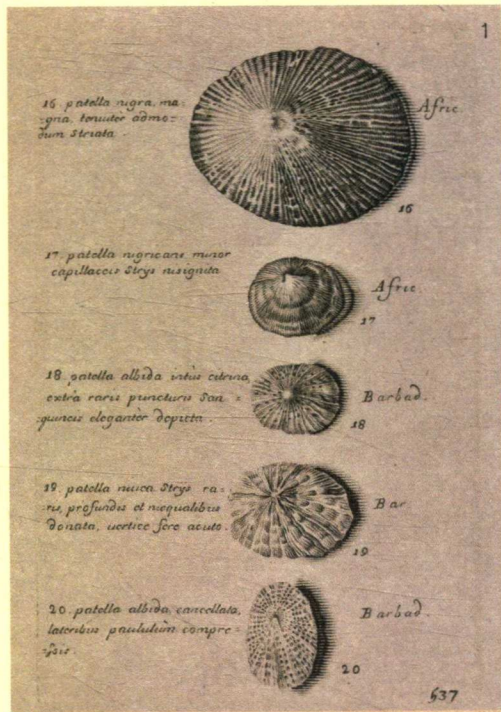 1
16. patella nigra, ma=
gna, tenuiter admo=
dum striata.
Afric.
16
17. patella nigricans, minor
capillaceis Strys insignita
Afric.
17
18. patella albida intus citrina,
extra raris puncturis San=
guineis eleganter depicta.
Barbad.
18
19. patella nivea Strys ra=
ris, profundis et inequalibus
donata, vertice fere acuto.
Bar
19
20. patella albida, cancellata,
lateribus paululùm compre=
ssis.
Barbad.
20
537